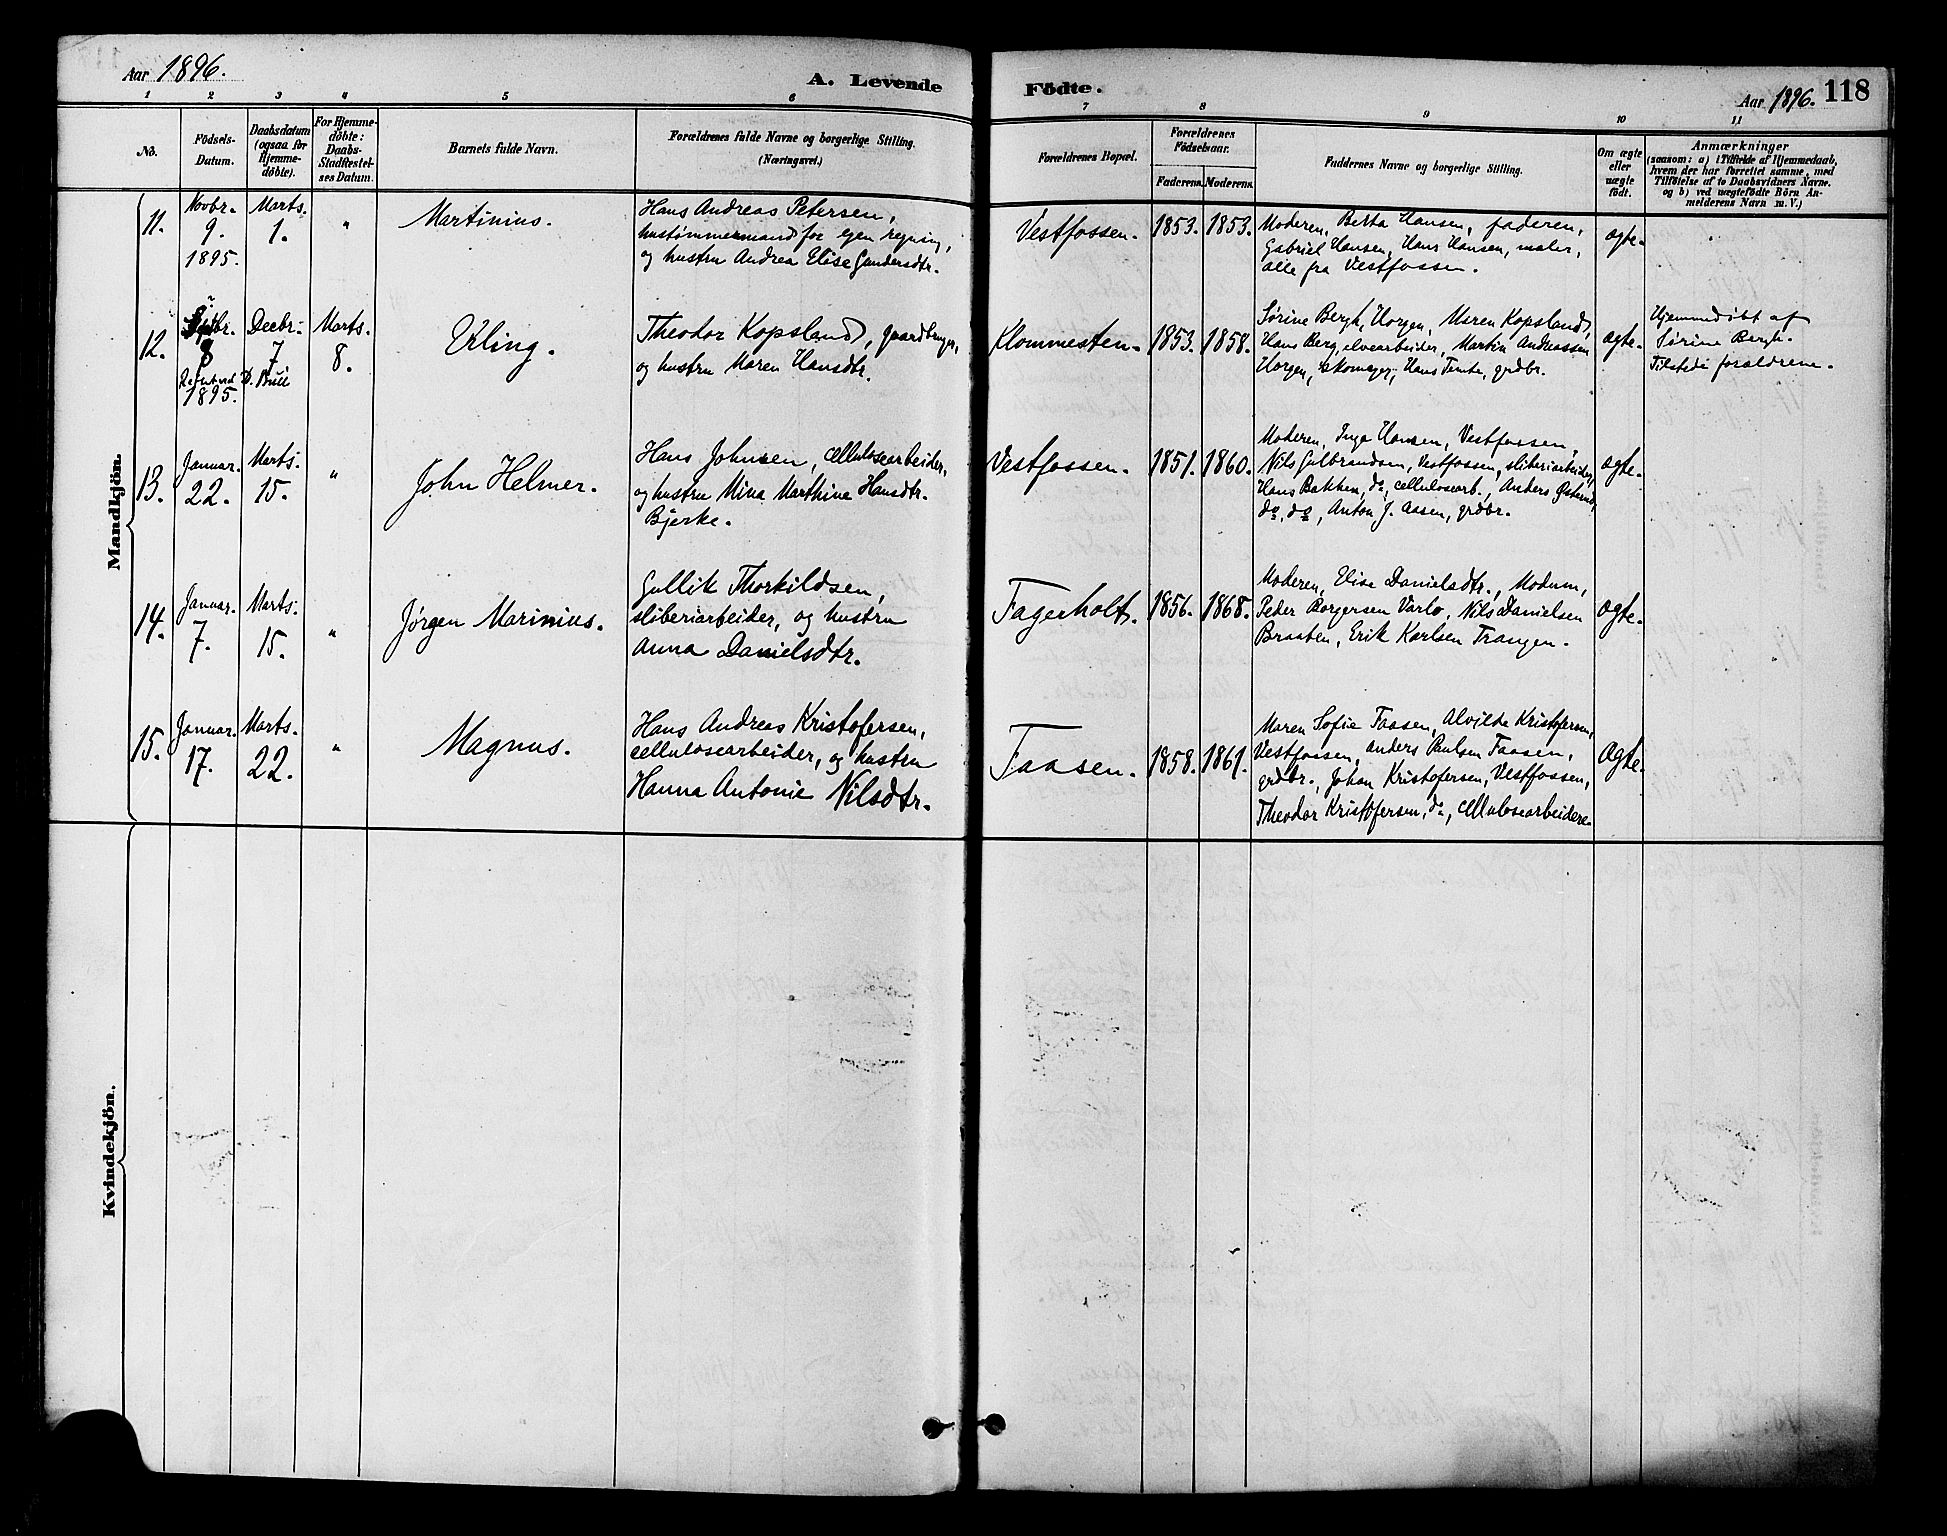 Aar 1896.
A. Levende Födte.
Aar 1896. 118
1 2 3 4 5 6 7 8 9 10 11
No.
Födsels-
Datum.
Daabsdatum
(ogsaa for
Hjemme-
døbte).
For Hjemme-
døbte:
Daabs-
Stadfestel-
ses Datum.
Barnets fulde Navn.
Forældrenes fulde Navne og borgerlige Stilling.
(Næringsvei.)
Forældrenes Bopæl.
Forældrenes
Födselsaar.
Faderens. Moderens.
Faddernes Navne og borgerlige Stilling.
Om ægte
eller
uægte
født.
Anmærkninger
(saasom: a) i Tilfælde af Hjemmedaab,
hvem der har forrettet samme, med
Tilføielse af to Daabsvidners Navne.
og b) ved uægtefødte Börn An-
melderens Navn m. V.)
Mandkjön.
11.
Novbr.
9.
1895.
Marts.
1.
"
Martinius.
Hans Andreas Petersen,
hustømmermand for egen regning,
og hustru Andrea Elise Gundersdtr.
Vestfossen.
1853. 1853.
Moderen, Berta Hansen, faderen,
Gabriel Hansen, Hans Hansen, maler,
alle fra Vestfossen.
ægte.
12.
8
1895.
Decbr.
7
Marts.
8.
Erling.
Theodor Kopsland, gaardbruger,
og hustru Maren Hansdtr.
Klommesten.
1853. 1858.
Sørine Bergh, Horgen, Maren Kopsland,
Hans Berg, elvearbeider, Martin Andreassen
Horgen, skomager, Hans Temte, grdbr.
ægte.
Hjemmedøbt af
Sørine Bergh.
Tilstede forældrene.
13.
Januar.
22.
Marts.
15.
"
John Helmer.
Hans Johnsen, cellulosearbeider,
og hustru Mina Marthine Hansdtr.
Bjerke.
Vestfossen.
1851. 1860.
Moderen, Inga Hansen, Vestfossen,
Nils Gulbrandsen, Vestfossen, sliberiarbeider,
Hans Bakken, do, cellulosearb., Anders
do, do, Anton J. Aasen, grdbr.
ægte.
14.
Januar.
7.
Marts.
15.
"
Jørgen Marinius.
Gullik Thorkildsen,
sliberiarbeider, og hustru
Anna Danielsdtr.
Fagerholt.
1856. 1868.
Moderen, Elise Danielsdtr., Modum,
Peder Borgersen Varlo, Nils Danielsen
Braaten, Erik Karlsen Trangen.
ægte.
15.
Januar.
17.
Marts.
22.
"
Magnus.
Hans Andreas Kristofersen,
cellulosearbeider, og hustru
Hanna Antonie Nilsdtr.
Faasen.
1858. 1861.
Maren Sofie Faasen, Alvilde Kristofersen,
Vestfossen, Anders Paulsen Faasen,
grdbr., Johan Kristofersen, Vestfossen,
Theodor Kristofersen, do, cellulosearbeidere.
ægte.
Kvindekjön.